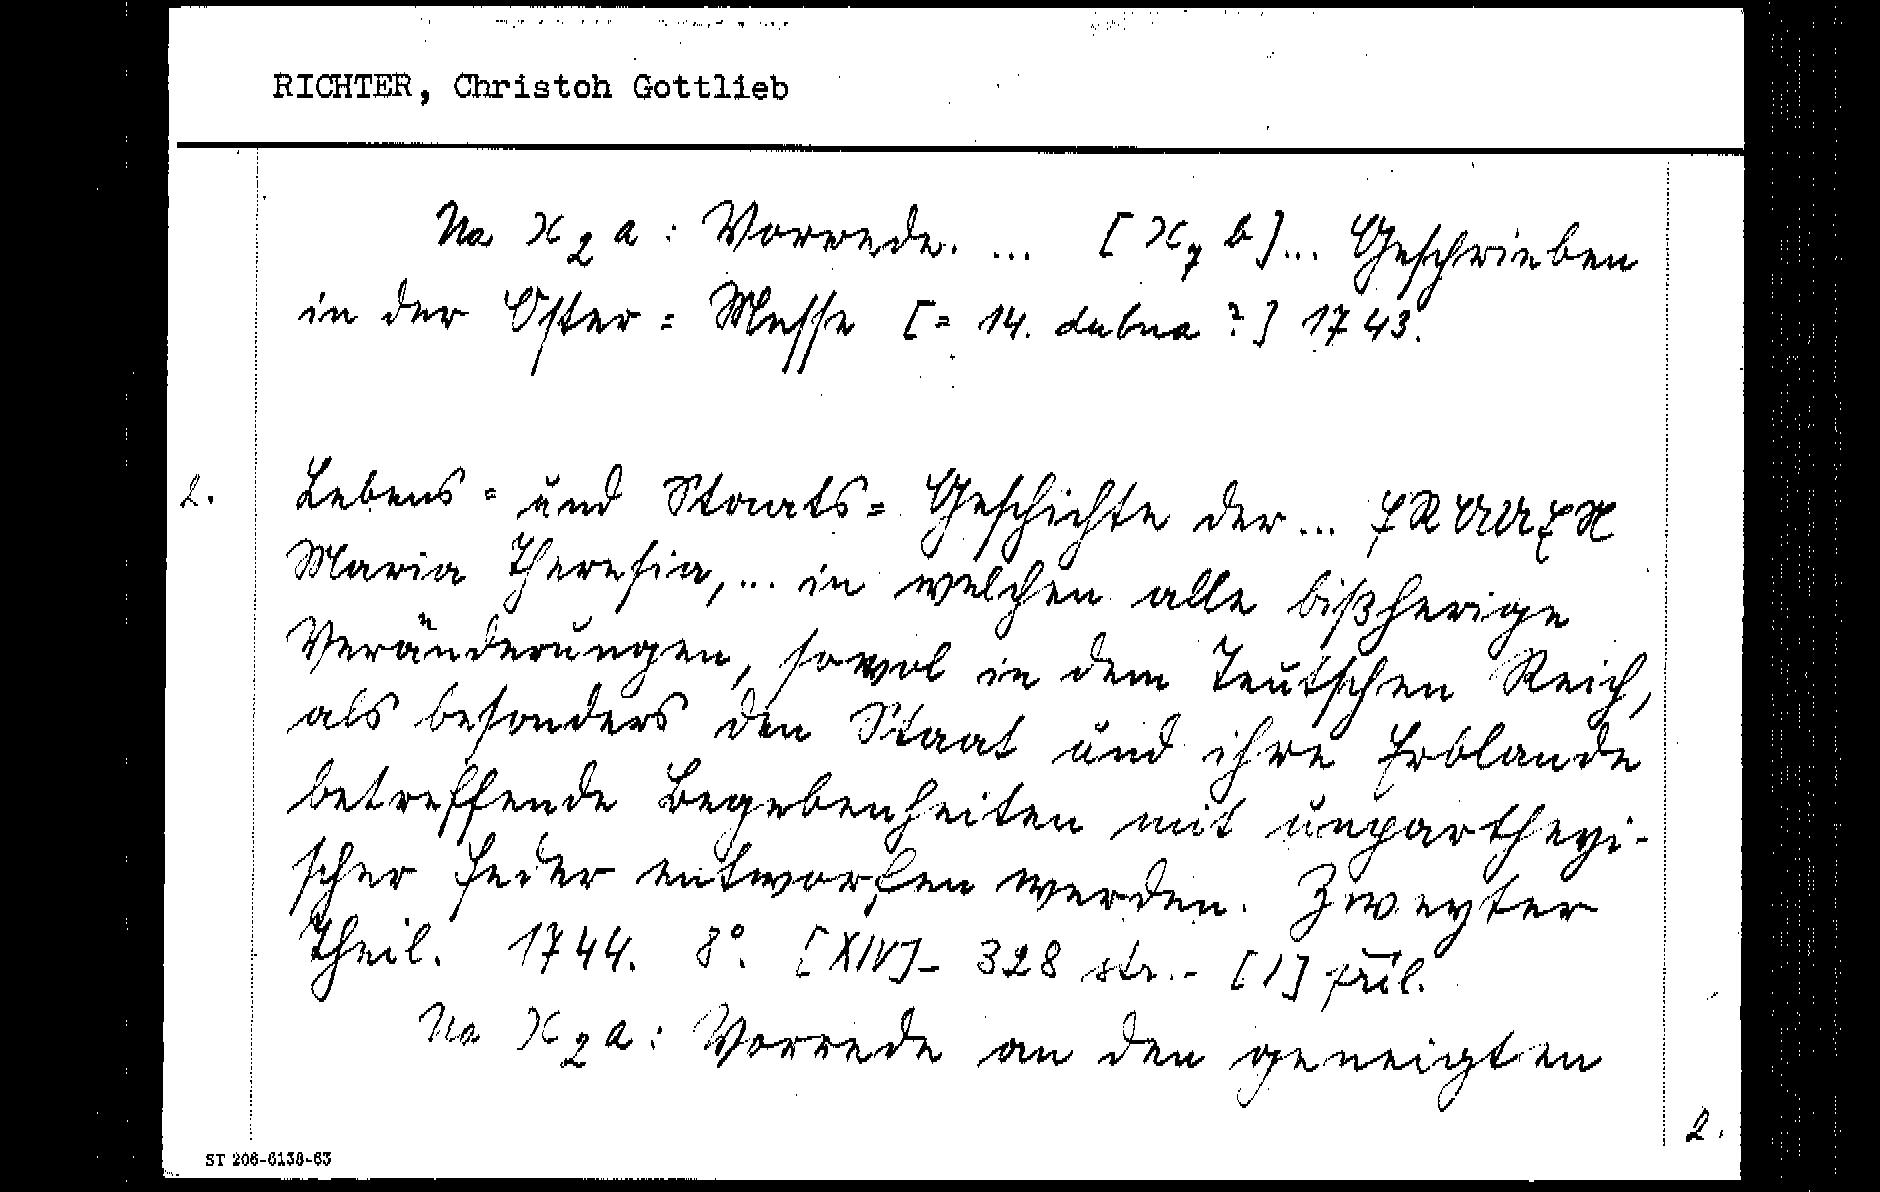 RICHTER, Christoh Gottlieb
Na X2a: Vorrede. ... [X7b]... Geschrieben
in der Oster= Messe [= 14. dubna?] 1743.
2. Lebens= und Staats= Geschichte der... FRAUEN
Maria Theresia,... in welchen alle bißherige
Veränderungen, sowol in dem Teutschen Reich,
als besonders den Staat und ihre Erblande
betreffende Begebenheiten mit unpartheyi-
scher Feder entworfen werden. Zweyter
Theil. 1744. 8°. [XIV]- 328 str.- [1] příl.
Na X2a: Vorrede an den geneigten
2.
ST 206-6138-63